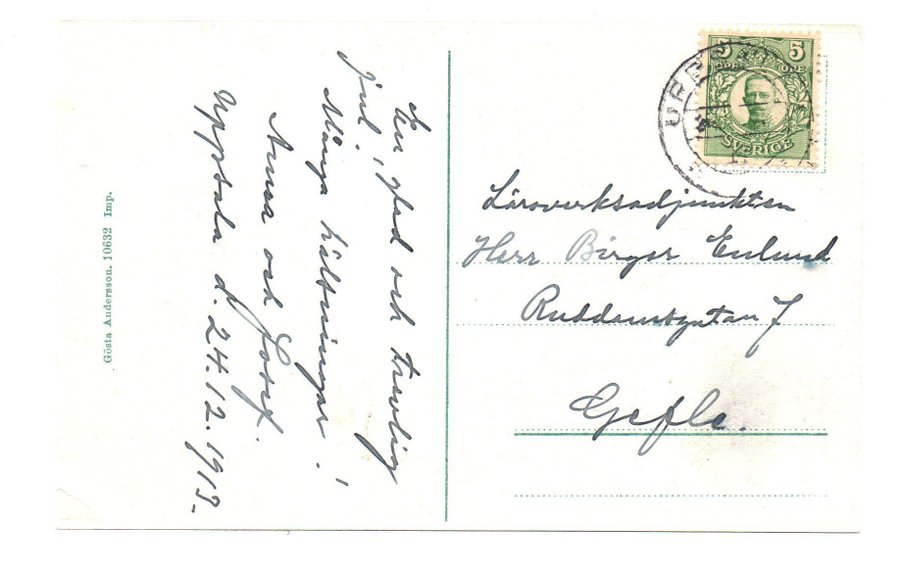 En glad och trevlig
jul!
Många hälsningar!
Anna och Josef.
Uppsala d. 24.12.1913.
Gösta Andersson. 10632 Imp.
5 5
ÖRE ÖRE
SVERIGE
Läroverksadjunkten
Herr Birger Enlund
Ruddamsgatan 7
Gefle.